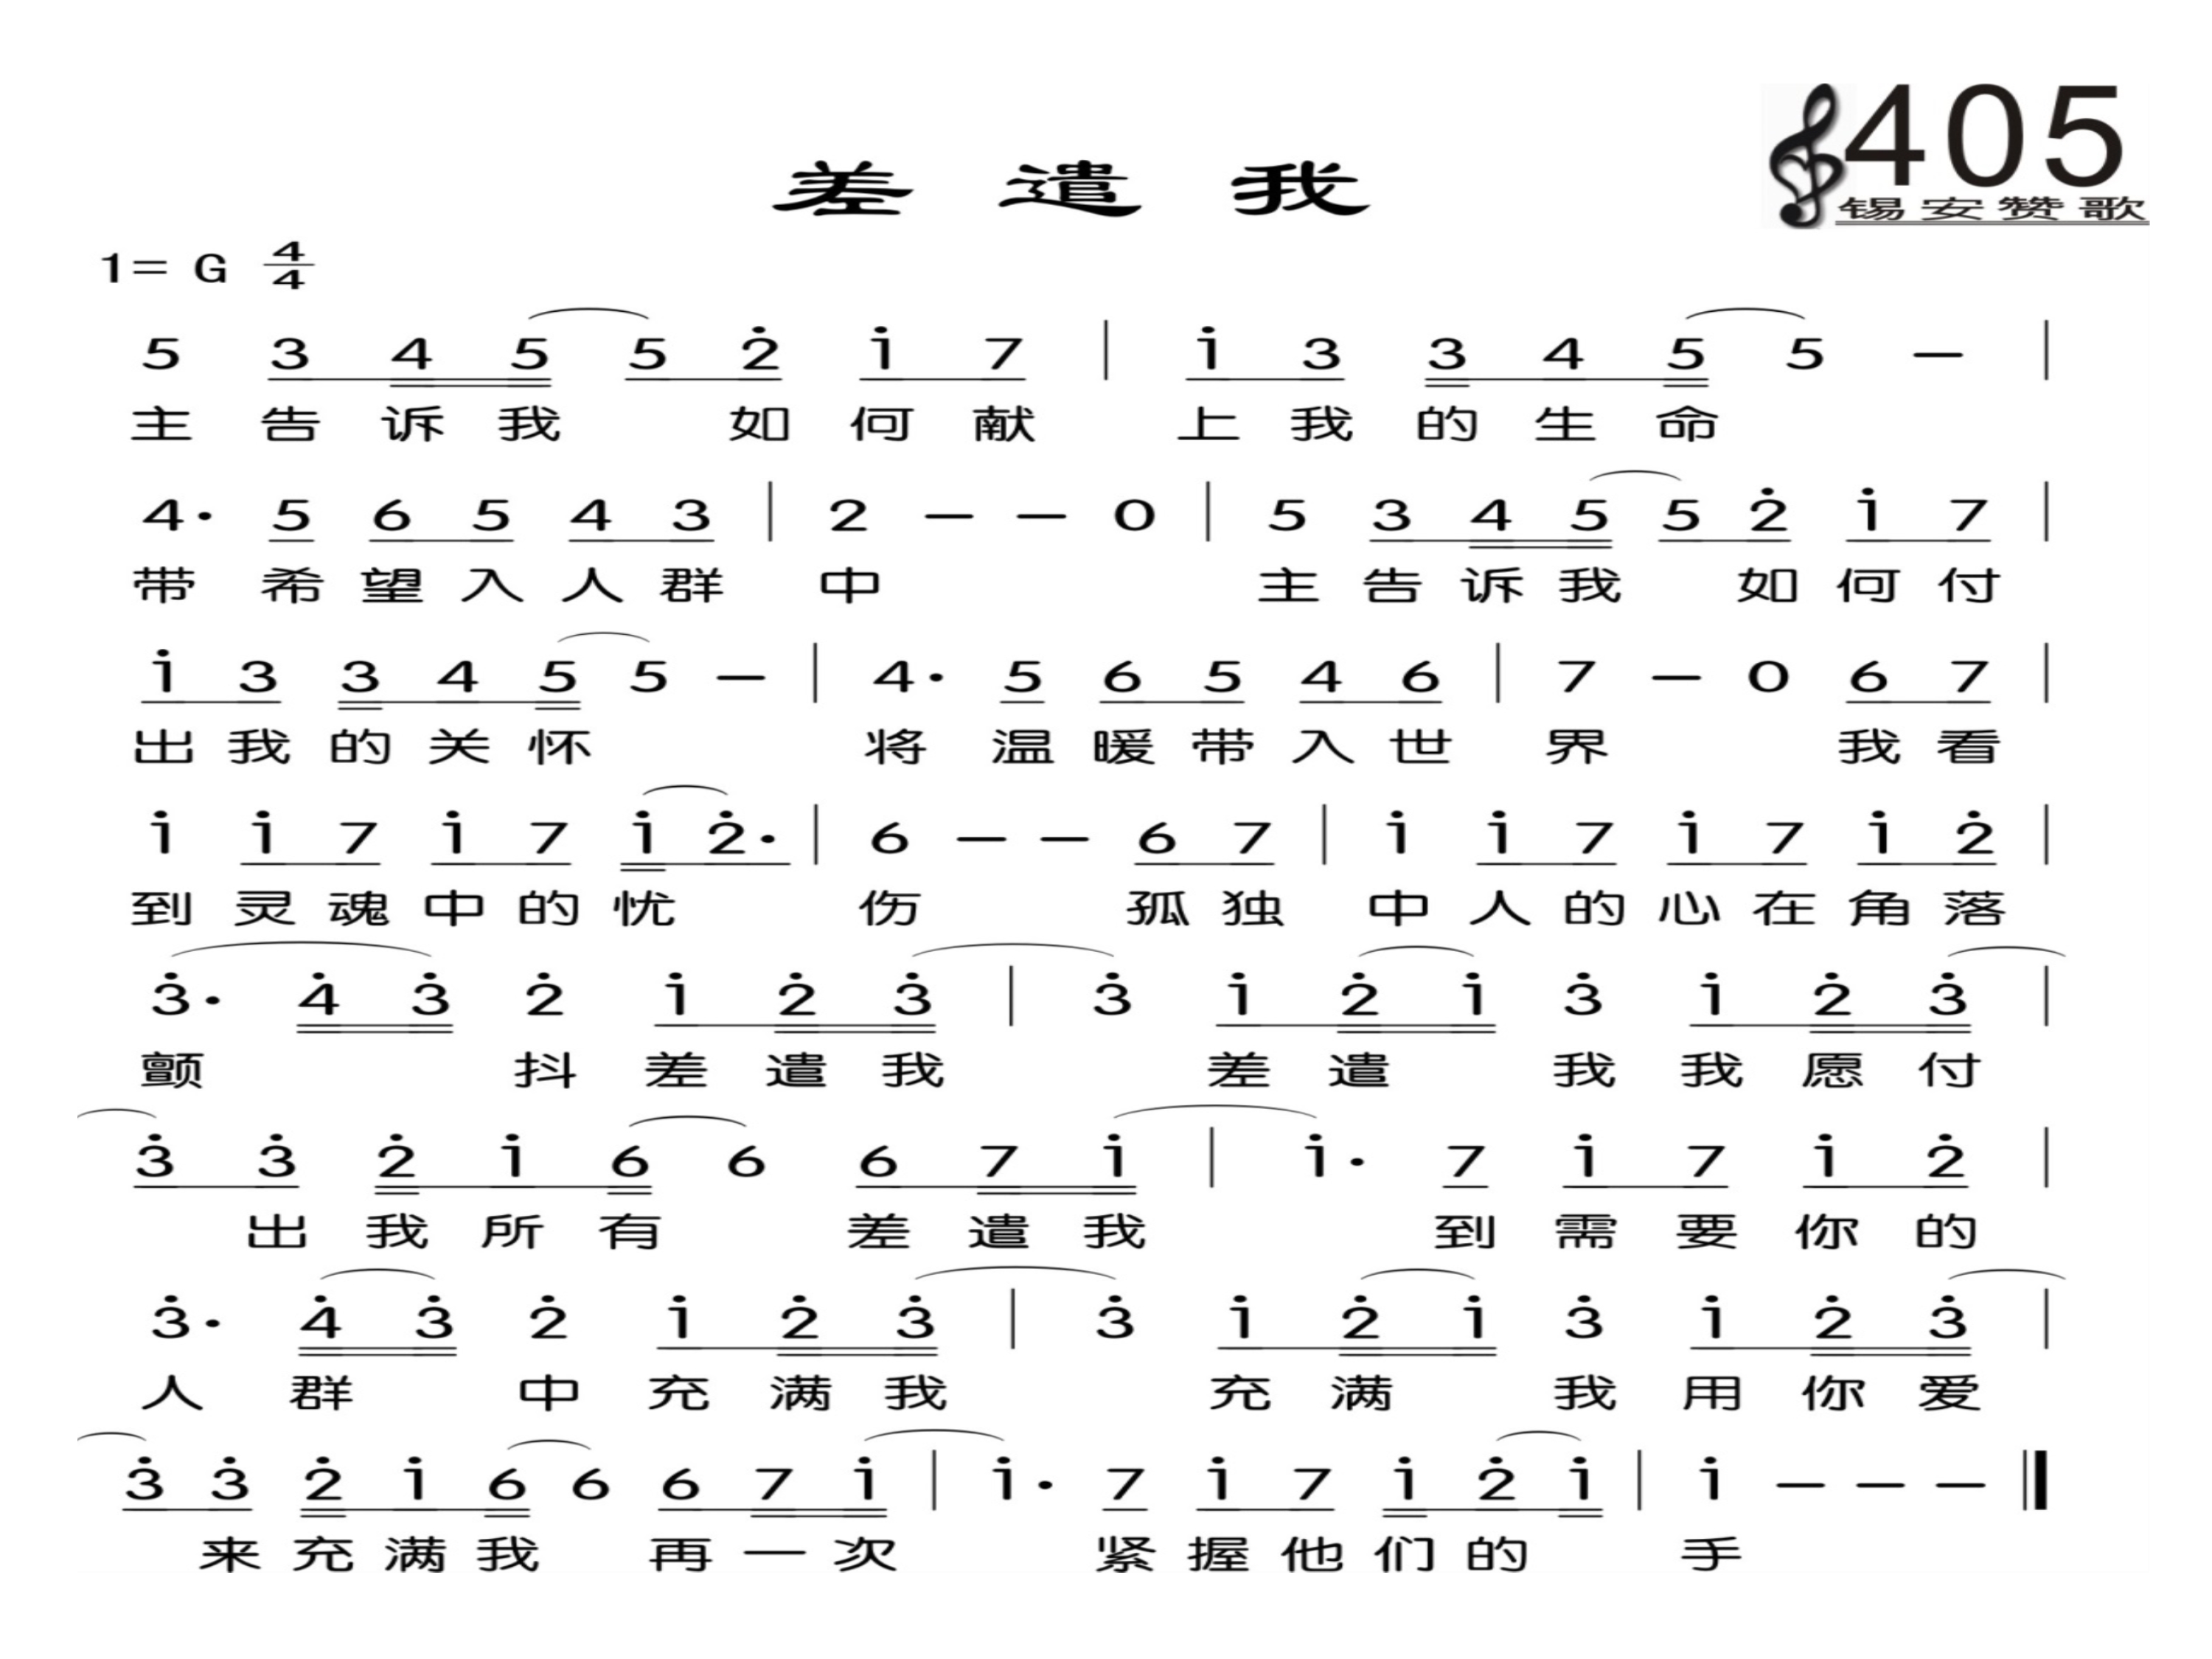 405
锡安赞歌
差遣我
1= G 4/4
5 3 4 5 5 2̇ 1̇ 7 | 1̇ 3 3 4 5 5 – |
主告诉我 如何献 上我的生命
4· 5 6 5 4 3 | 2 – – 0 | 5 3 4 5 5 2̇ 1̇ 7 |
带希望入人群 中 主告诉我 如何付
1̇ 3 3 4 5 5 – | 4· 5 6 5 4 6 | 7 – 0 6 7 |
出我的关怀 将温暖带入世 界 我看
1̇ 1̇ 7 1̇ 7 1̇ 2̇· | 6 – – 6 7 | 1̇ 1̇ 7 1̇ 7 1̇ 2̇ |
到灵魂中的忧 伤 孤独 中人的心在角落
3̇· 4̇ 3̇ 2̇ 1̇ 2̇ 3̇ | 3̇ 1̇ 2̇ 1̇ 3̇ 1̇ 2̇ 3̇ |
颤 抖差遣我 差遣 我我愿付
3̇ 3̇ 2̇ 1̇ 6 6 6 7 1̇ | 1̇· 7 1̇ 7 1̇ 2̇ |
出我所有 差遣我 到需要你的
3̇· 4̇ 3̇ 2̇ 1̇ 2̇ 3̇ | 3̇ 1̇ 2̇ 1̇ 3̇ 1̇ 2̇ 3̇ |
人群 中充满我 充满 我用你爱
3̇ 3̇ 2̇ 1̇ 6 6 6 7 1̇ | 1̇· 7 1̇ 7 1̇ 2̇ 1̇ | 1̇ – – – ‖
来充满我 再一次 紧握他们的 手